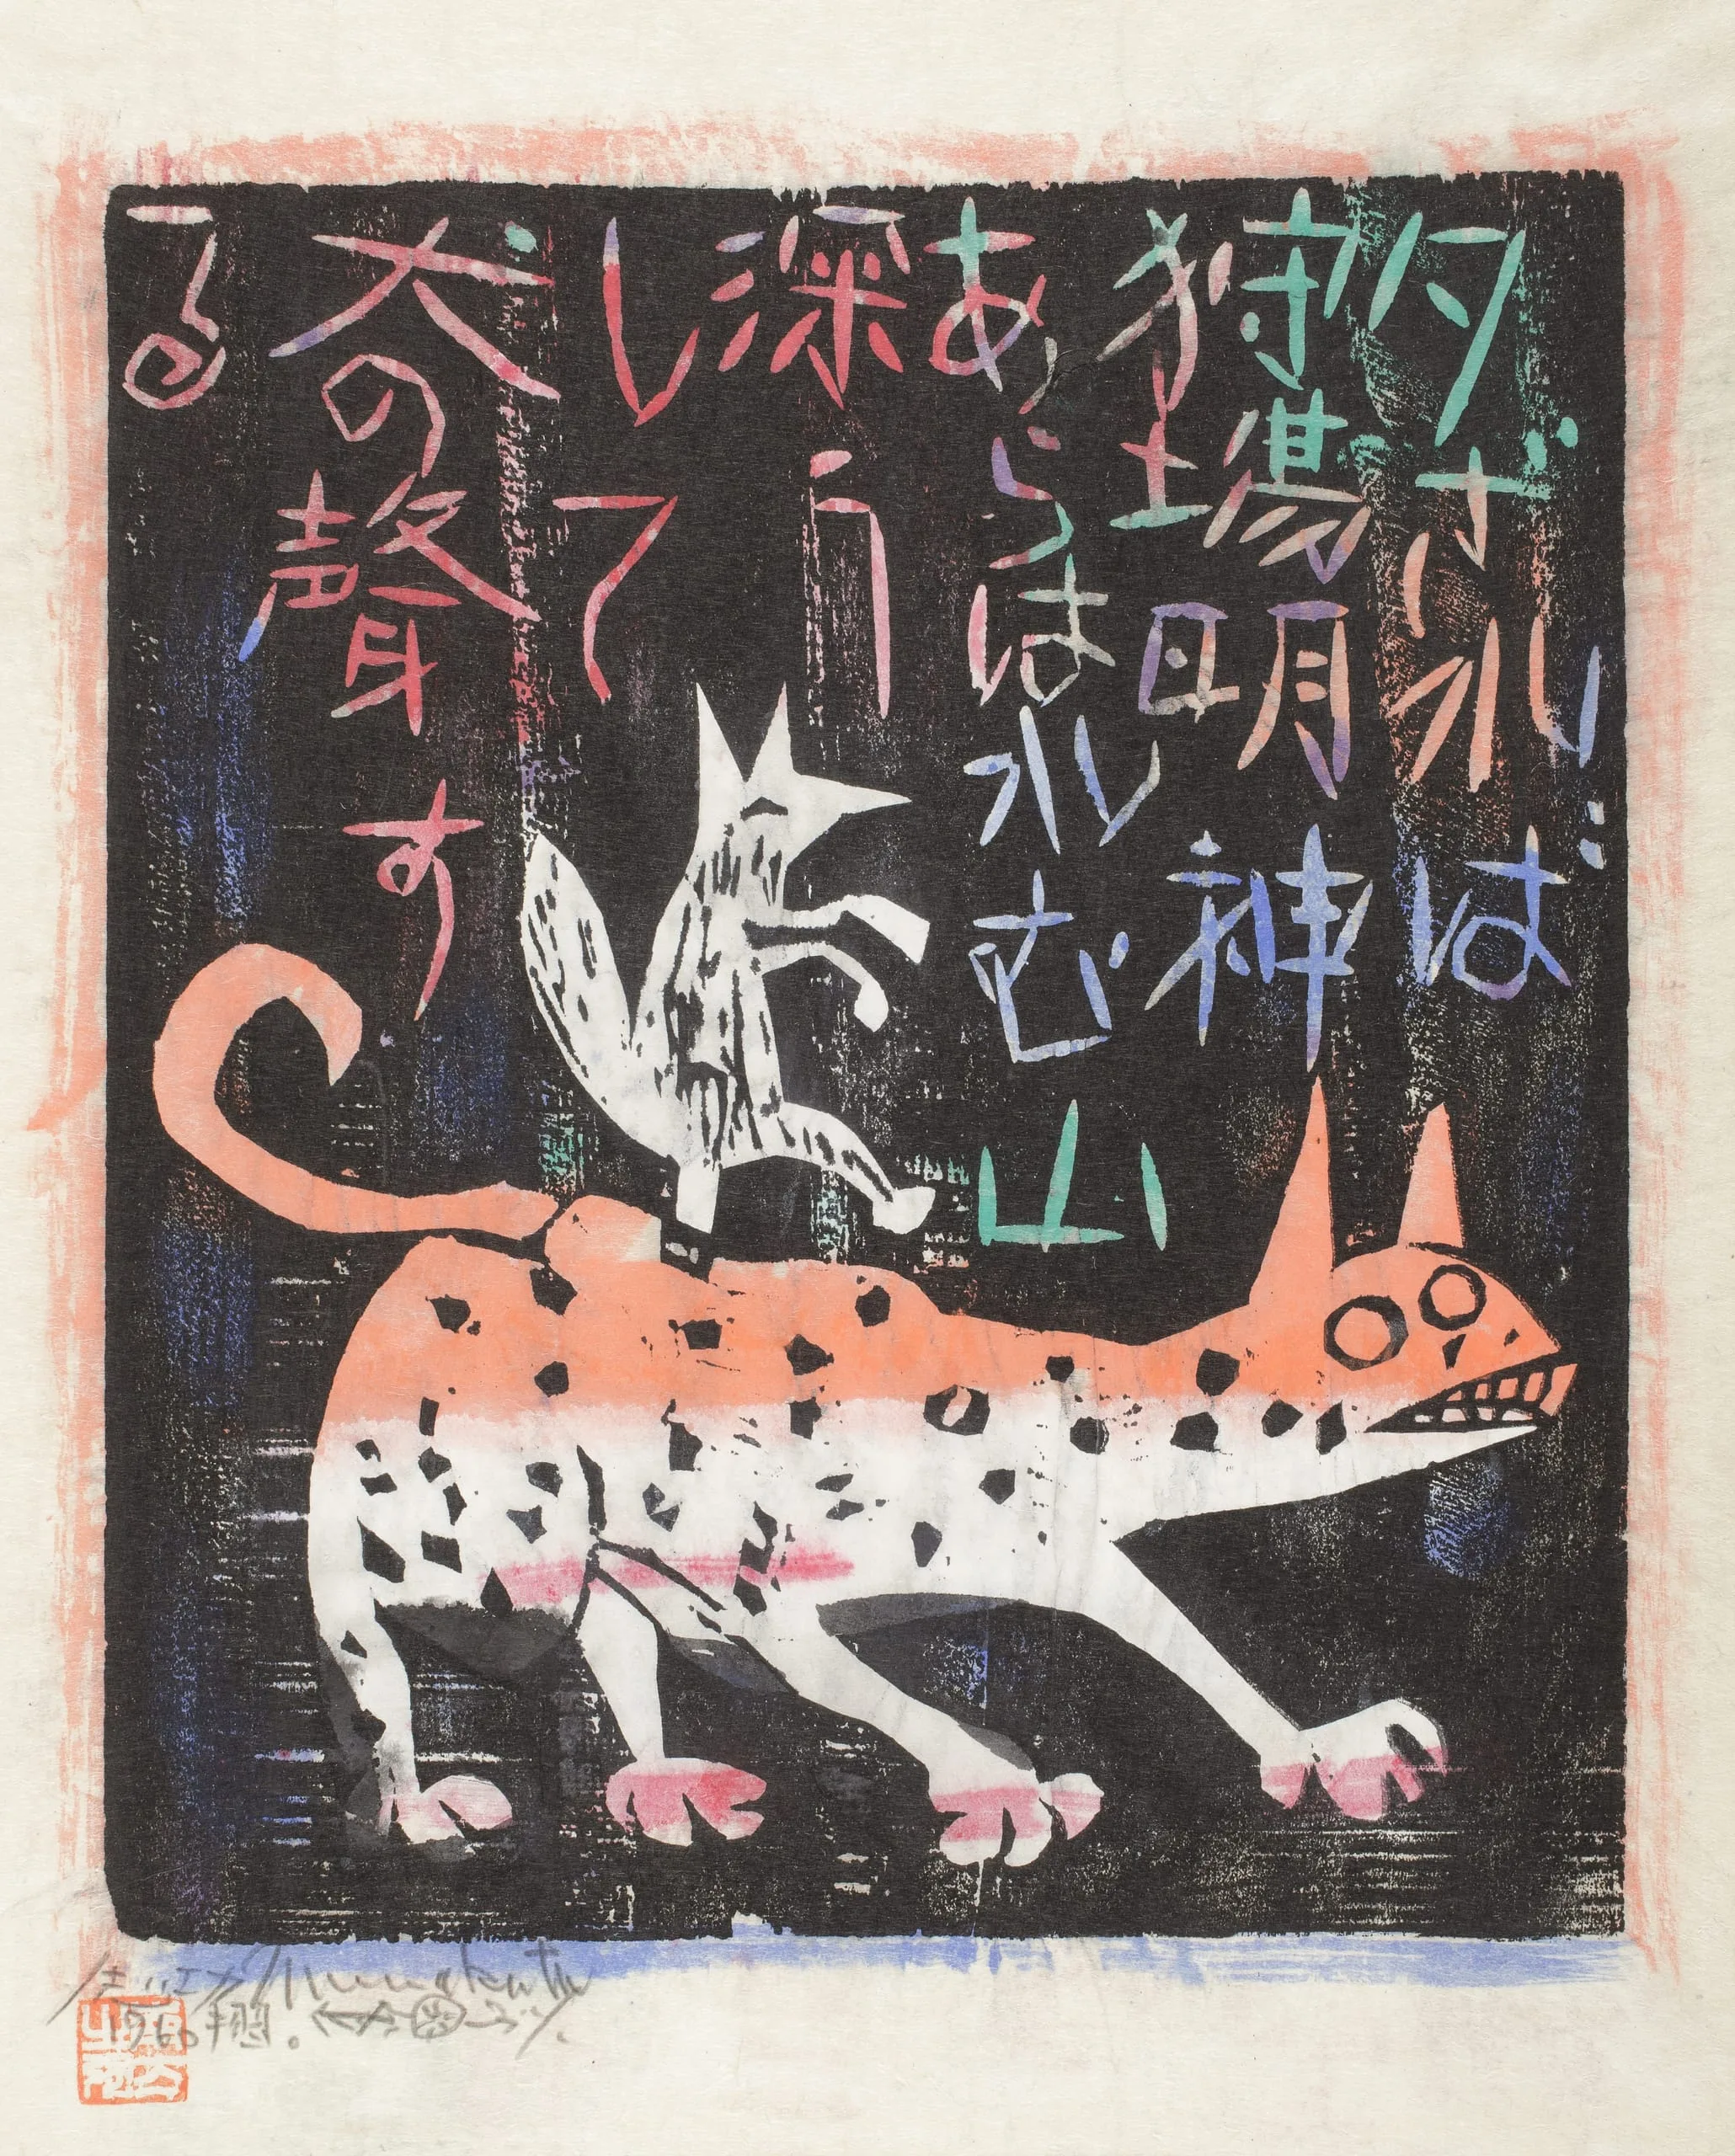 夕ざれば
狩場明神
あらはれむ山
深う
して
犬の聲す
る
Munakata